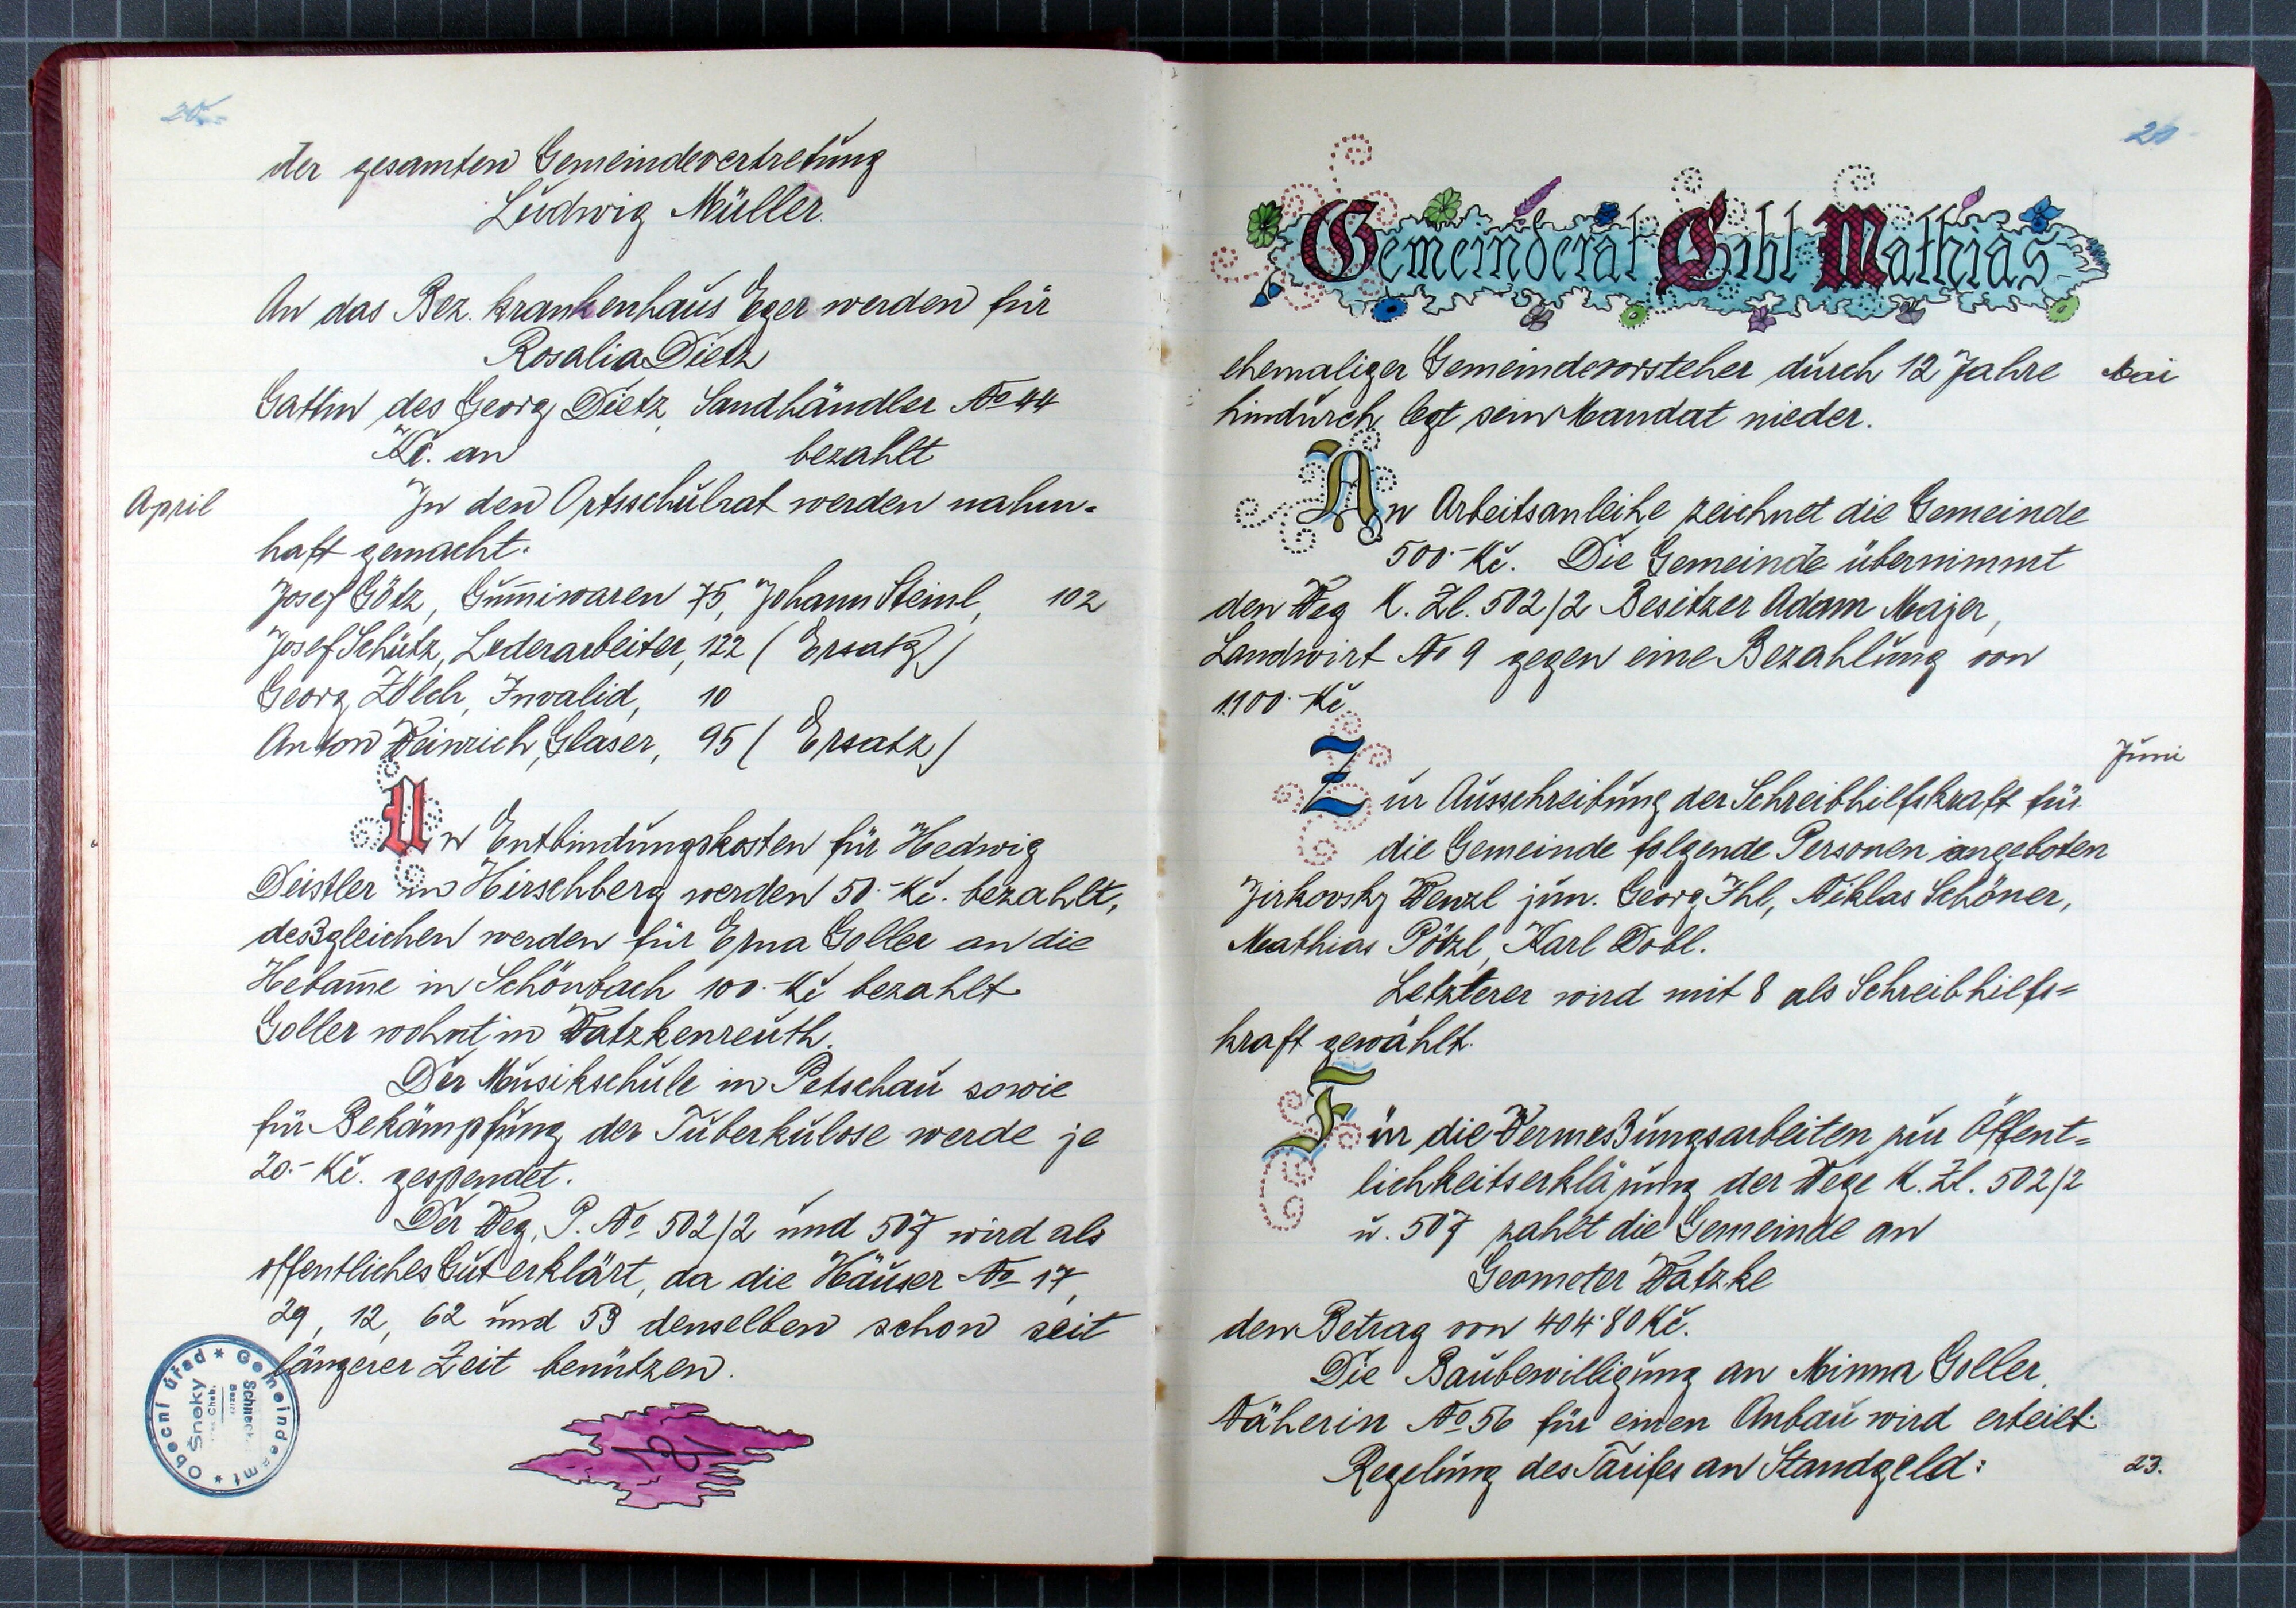 20
der gesamten Gemeindevertretung
Ludwig Müller.
An das Bez. krankenhaus Eger werden für
Rosalia Dietz
Gattin des Georg Dietz, Sandhändler No 44
Kč. an bezahlt
April
In den Ortsschulrat werden nahm-
haft gemacht.
Josef Götz, Gum̄iwaren 75, Johann Steinl, 102
Josef Schütz, Lederarbeiter, 122 (Ersatz)
Georg Zölch, Invalid, 10
Anton Weinrich, Glaser, 95 (Ersatz)
An Entbindungskosten für Hedwig
Deistler in Hirschberg werden 50.- Kč. bezahlt,
desßgleichen werden für Erna Goller an die
Hebam̄e in Schönbach 100.- Kč bezahlt
Goller wohnt in Watzkenreuth.
Der Musikschule in Petschau sowie
für Bekämpfung der Tuberkulose werde je
20.- Kč. gespendet.
Der Weg, P. No 502/2 und 507 wird als
öffentliches Gut erklärt, da die Häuser No 17,
29, 12, 62 und 53 denselben schon seit
längerer Zeit benützen.
Obecní úřad * Gemeindeamt *
Šneky
Cheb.
Bezirk
Schneck
Gemeinderat Eibl Mathias
ehemaliger Gemeindevorsteher durch 12 Jahre Mai
hindurch, legt sein Mandat nieder.
An Arbeitsanleihe zeichnet die Gemeinde
500.- Kč. Die Gemeinde übernimmt
den Weg K. Zl. 502/2 Besitzer Adam Majer,
Landwirt No 9 gegen eine Bezahlung von
1.100.- Kč.
Juni
Zur Ausschreibung der Schreibhilfskraft für
die Gemeinde folgende Personen angeboten
Jirkovsky Wenzl jun. Georg Ihl, Niklas Schöner,
Mathias Pötzl, Karl Dobl.
Letzterer wird mit 8 als Schreibhilfs=
kraft gewählt.
Für die Vermesßungsarbeiten zur Öffent=
lichkeitserklärung der Wege K. Zl. 502/2
u. 507 zahlt die Gemeinde an
Geometer Watzke
den Betrag von 404.80 Kč.
Die Baubewilligung an Minna Goller,
Näherin No 56 für einen Anbau wird erteilt.
Regelung des Tarifes an Standgeld: 23.